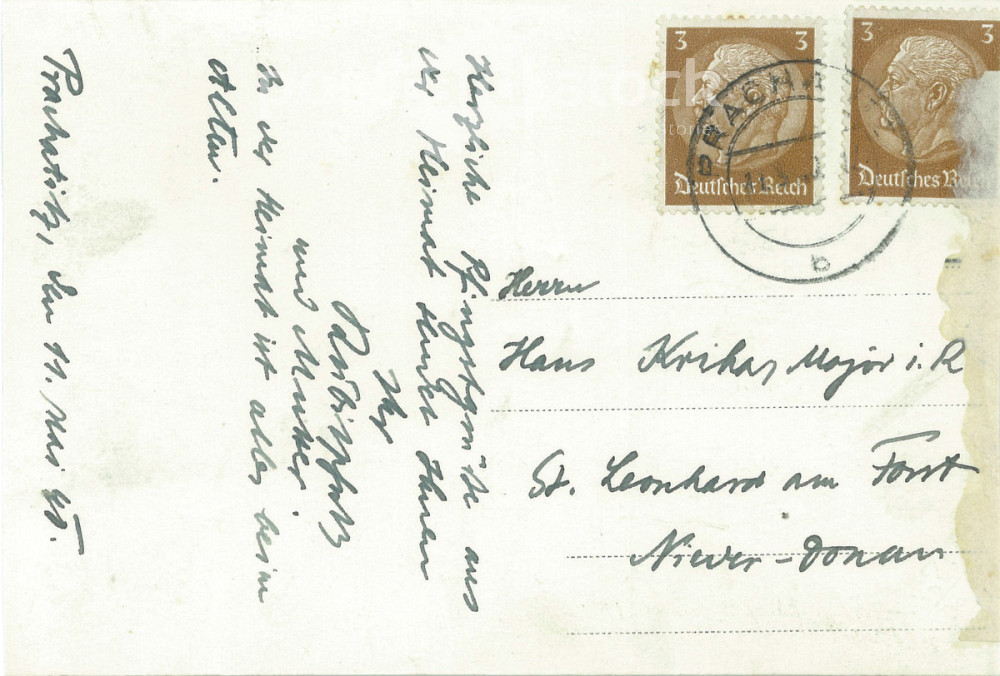 3 3
Deutsches Reich
3 3
Deutsches Reich
PRACH
b
Herrn
Hans Krikas Major i. R
St. Leonhard am Forst
Nieder-Donau
Herzliche Pfingstgrüße aus
der Heimat sendet Ihnen
Ihr
und Mutter.
In der Heimat ist alles beim
Alten.
Prachatitz, den 11. Mai 40.